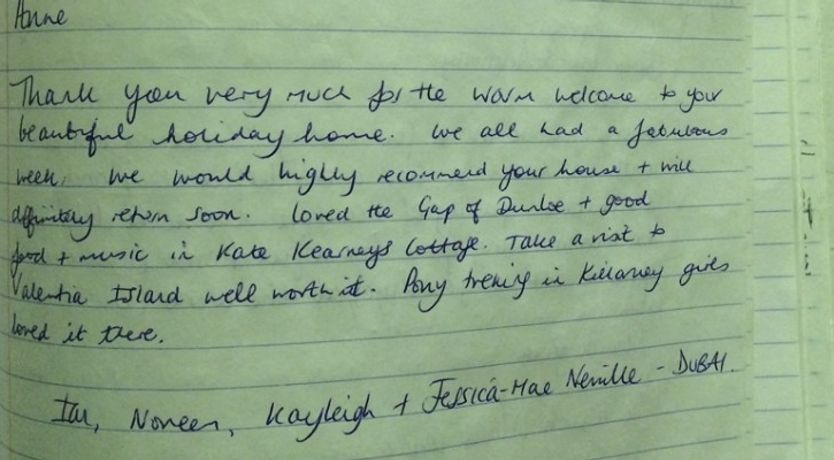 Anne
Thank you very much for the warm welcome to your
beautiful holiday home. We all had a fabulous
week. We would highly recommend your house + will
definitely return soon. Loved the Gap of Dunloe + good
food + music in Kate Kearneys Cottage. Take a visit to
Valentia Island well worth it. Pony treking in Killarney girls
loved it there.
Ian, Noreen, Kayleigh + Jessica-Mae Neville - DUBAI.